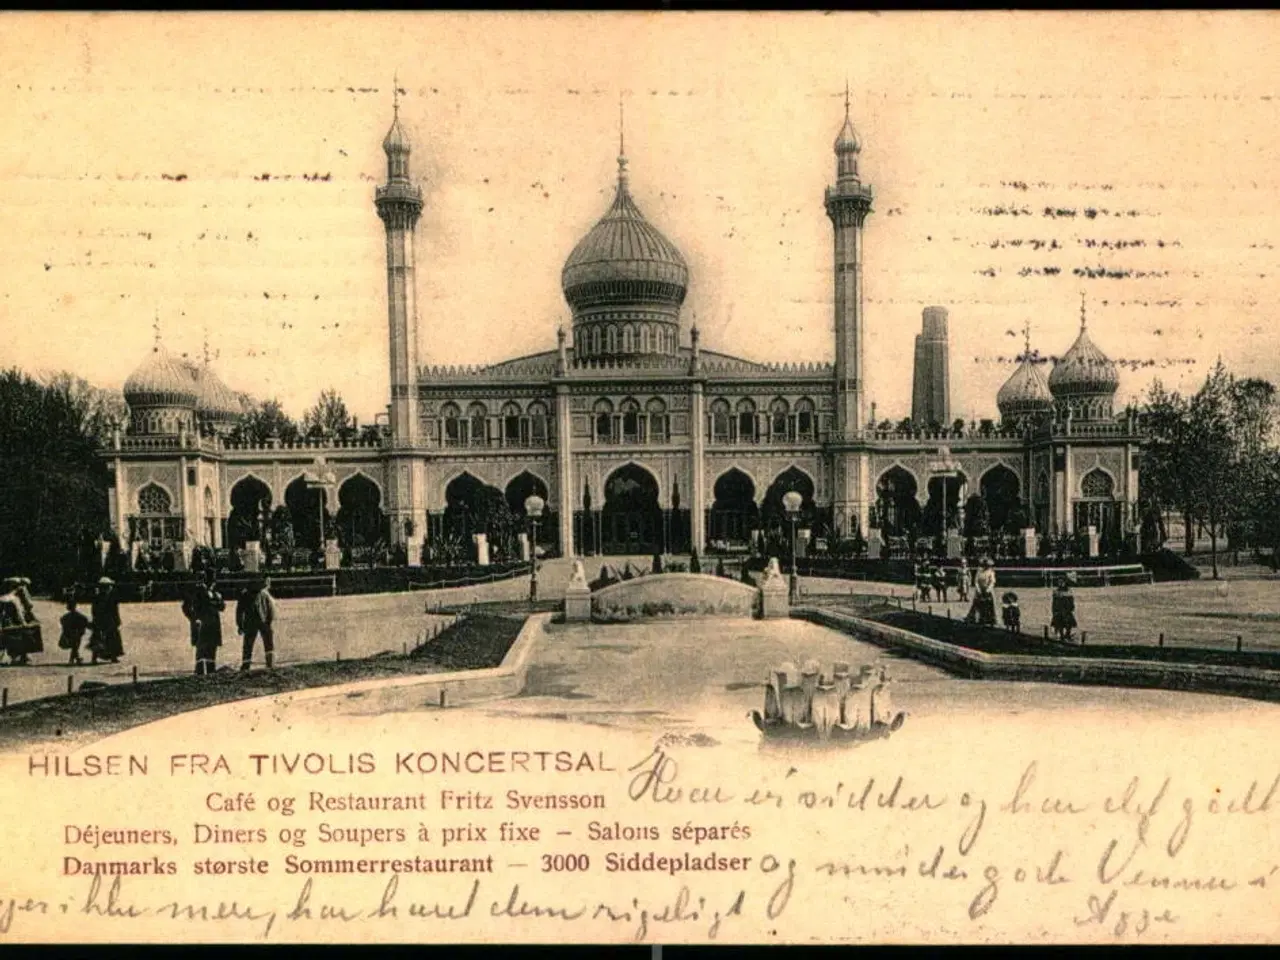 HILSEN FRA TIVOLIS KONCERTSAL
Café og Restaurant Fritz Svensson
Déjeuners, Diners og Soupers à prix fixe – Salons séparés
Danmarks største Sommerrestaurant — 3000 Siddepladser
Hvor vi sidder og har det godt
og mindes gode Venner i
ikke mere, har haret dem rigeligt
Aage